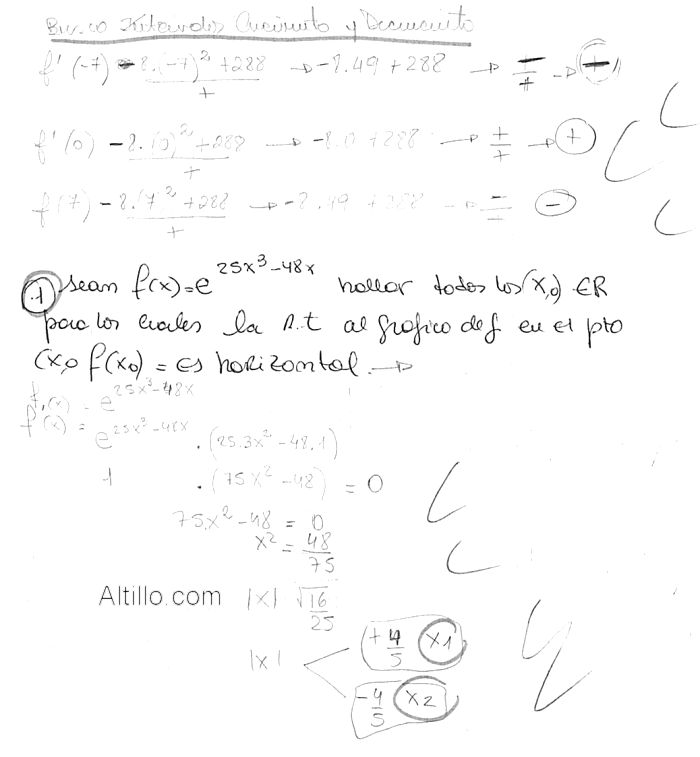 Busco Intervalos Crecimiento y Decrecimiento
f'(-7) -8.(-7)² +288 / + → -8.49 +288 → - / + → (-) //
f'(0) -8.(0)² +288 / + → -8.0 +288 → + / + → (+)
f'(7) -8.(7)² +288 / + → -8.49 +288 → - / + (-)
1) Sean f(x)=e^(25x³-48x) hallar todos los (x,0) ∈R
para los cuales la R.t al gráfico de f en el pto
(x0 f(x0) = es horizontal. →
f(x) = e^(25x³-48x)
f'(x) = e^(25x³-48x) . (25.3x² -48.1)
1 . (75x² -48) = 0
75x² -48 = 0
x² = 48/75
Altillo.com |x| √16/25
+4/5 x1
|x|
-4/5 x2